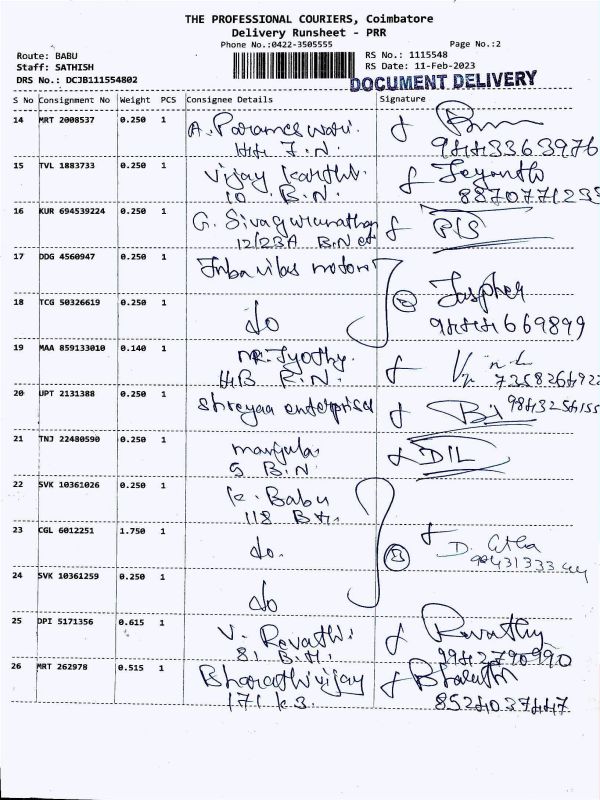 THE PROFESSIONAL COURIERS, Coimbatore
Delivery Runsheet - PRR
Phone No.:0422-3505555
Page No.:2
Route: BABU
RS No.: 1115548
Staff: SATHISH
RS Date: 11-Feb-2023
DRS No.: DCJB111554802
DOCUMENT DELIVERY
S No Consignment No Weight PCS Consignee Details Signature
14 MRT 2008537 0.250 1 A. Parameswari.
9443363976
15 TVL 1883733 0.250 1 Vijay Karthi. Jeyanth
10 B.N. 887077123
16 KUR 694539224 0.250 1 G. Sivagurunathan
12/23A B.N
17 DDG 4560947 0.250 1 Inba vilas motor
18 TCG 50326619 0.250 1 do 2
9444669899
19 MAA 859133010 0.140 1 Mr. Jyothy.
20 UPT 2131388 0.250 1 Shreyaa enterprises
21 TNJ 22480590 0.250 1 manjula DIL
5 B.N.
22 SVK 10361026 0.250 1 K. Babu
118 B.H.
23 CGL 6012251 1.750 1 do. 3
24 SVK 10361259 0.250 1 do
25 DPI 5171356 0.615 1 V. Revathi. Revathy
81 B.H. 9942790990
26 MRT 262978 0.515 1 Bharathi vijay Bharathi
171 K.S. 8524037447